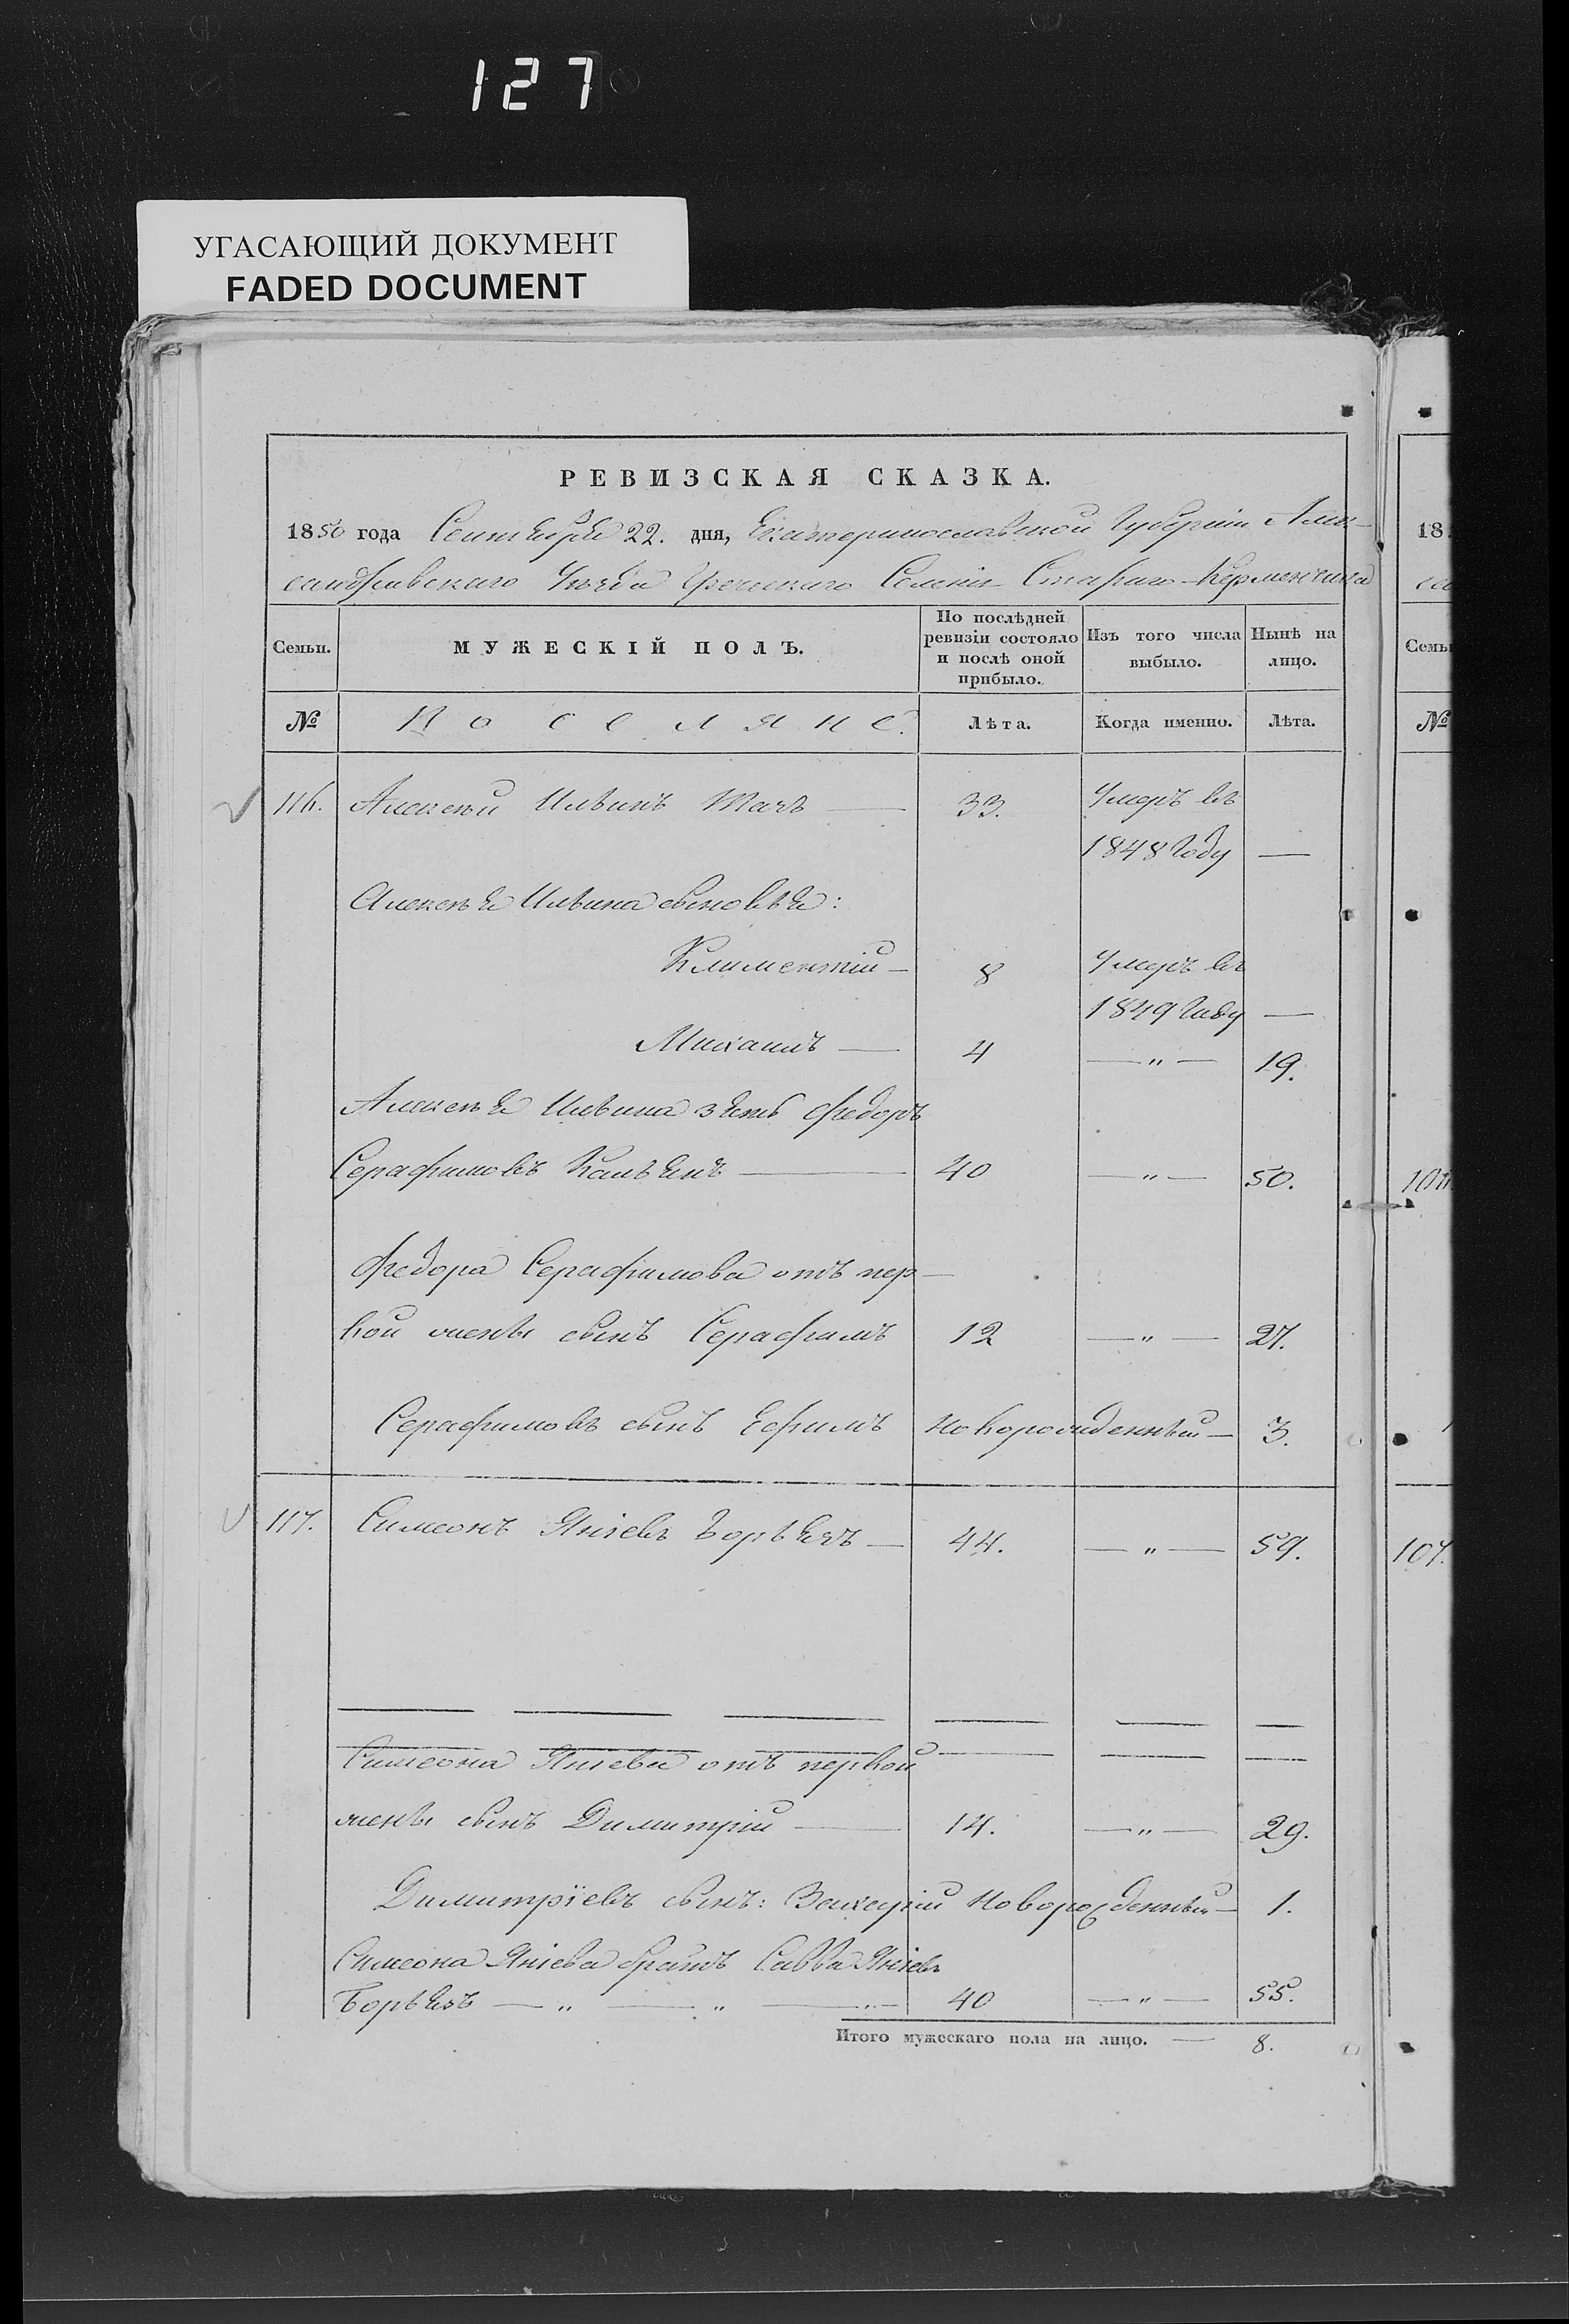 127
УГАСАЮЩИЙ ДОКУМЕНТ
FADED DOCUMENT
РЕВИЗСКАЯ СКАЗКА.
1850 года Сентября 22. дня, Екатеринославской Губерніи Алек-
сандровскаго Уѣзда Греческаго Селенія Стараго-Керменчика
Семьи. МУЖЕСКІЙ ПОЛЪ. По послѣдней ревизіи состояло и послѣ оной прибыло. Изъ того числа выбыло. Нынѣ на лицо.
№ Поселяне. Лѣта. Когда именно. Лѣта.
116. Алексѣй Ильинъ 33. Умеръ въ
1848 Году —
Алексѣя Ильина сыновья:
Климентій — 8 Умеръ въ
1849 Году —
Михаилъ — 4 — " — 19.
Алексѣя Ильина зять Федоръ
Серафимовъ — 40 — " — 50.
Федора Серафимова отъ пер-
вой жены сынъ Серафимъ 12 — " — 27.
Серафимовъ сынъ Ефимъ Новорожденный — 3.
117. Симеонъ Яніевъ Борѣязъ — 44. — " — 59.
Симеона Яніева отъ первой
жены сынъ Димитрій — 14. — " — 29.
Димитріевъ сынъ: Захарій Новорожденный — 1.
Симеона Яніева братъ Савва Яніевъ
Борѣязъ — " — " — " — 40 — " — 55.
Итого мужескаго пола на лицо. — 8.
18
Семьи
№
107.